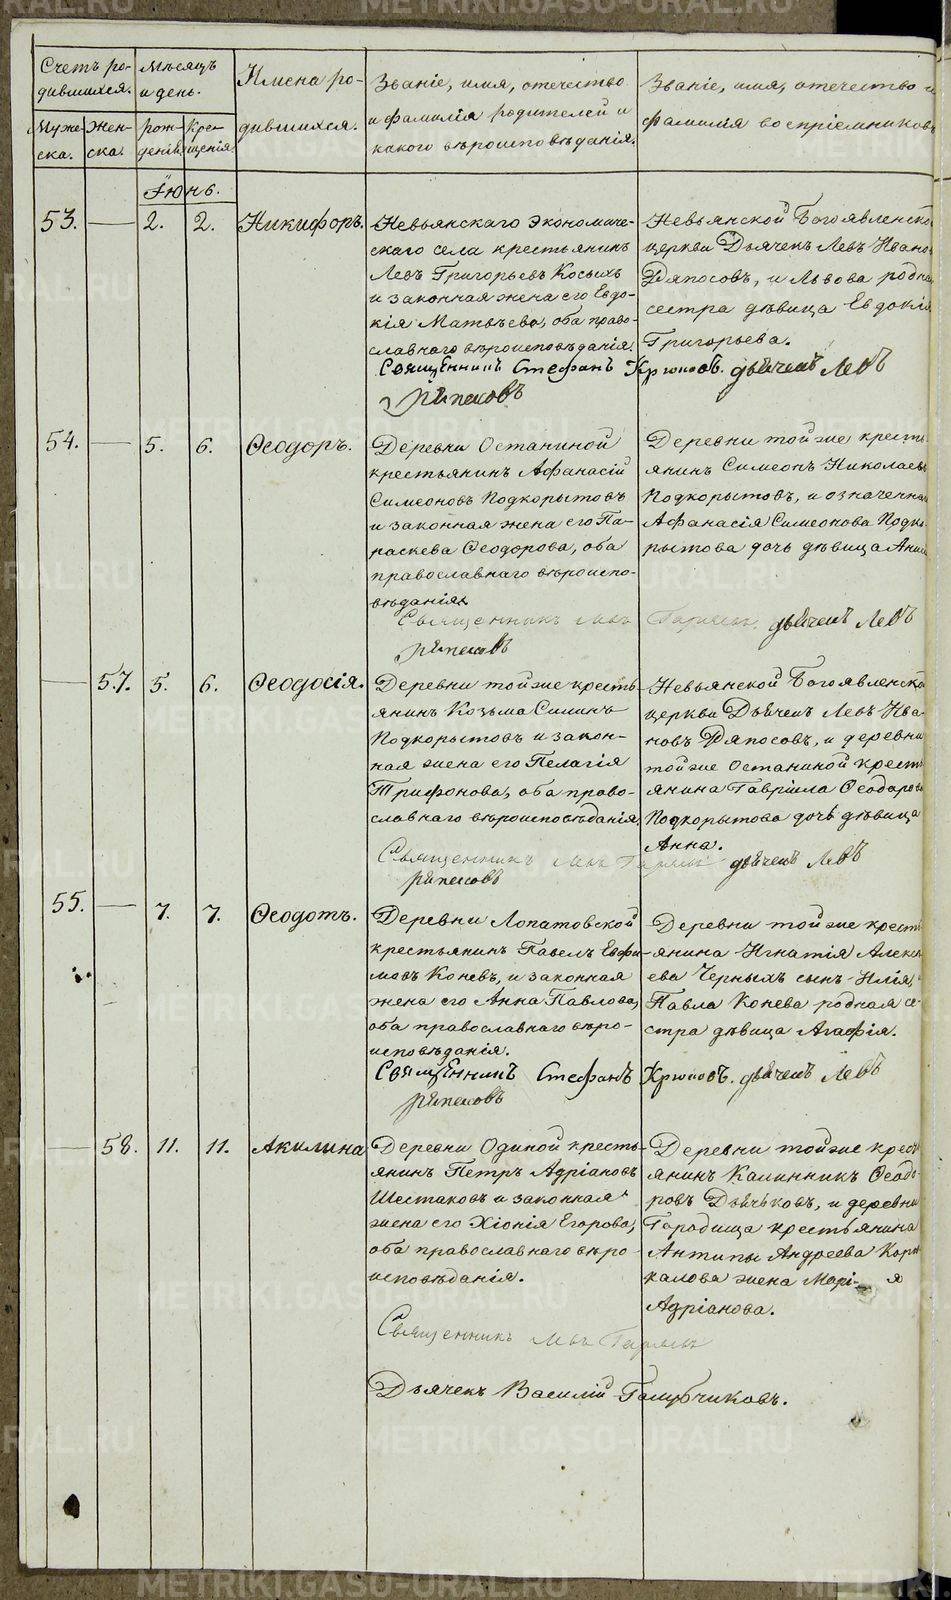 Счетъ ро-
дившихся.
Мѣсяцъ
и день.
Имена ро-
дившихся.
Званіе, имя, отечество
и фамилія родителей и
какого вѣроисповѣданія.
Званіе, имя, отечество и
фамилія воспріемниковъ
Муже-
ска.
Жен-
ска.
рож-
денія
Кре-
щенія
Іюнь.
53. — 2. 2. Никифоръ.
Невьянскаго Экономиче-
скаго села крестьянинъ
Левъ Григорьевъ Косыхъ
и законная жена его Евдо-
кія Матвѣева, оба право-
славнаго вѣроисповѣданія.
Невьянской Богоявленской
церкви Дьячекъ Левъ Ивано
Ряпосовъ, и Львова родная
сестра дѣвица Евдокія
Григорьева.
Священникъ Стефанъ Крюковъ. дьячекъ Левъ
Ряпосовъ
54. — 5. 6. Ѳеодоръ.
Деревни Останиной
крестьянинъ Афанасій
Симеоновъ Подкорытовъ
и законная жена его Па-
раскева Ѳеодорова, оба
православнаго вѣроиспо-
вѣданія.
Деревни той же кресть-
янинъ Симеонъ Николаевъ
Подкорытовъ, и означеннаго
Афанасія Симеонова Подко-
рытова дочь дѣвица
Священникъ дьячекъ Левъ
Ряпосовъ
— 57. 5. 6. Ѳеодосія.
Деревни той же кресть-
янинъ Козьма Силинъ
Подкорытовъ и закон-
ная жена его Пелагія
Трифонова, оба право-
славнаго вѣроисповѣданія.
Невьянской Богоявленской
церкви Дьячекъ Левъ Ива-
новъ Ряпосовъ, и деревни
той же Останиной кресть-
янина Гавріила Ѳеодорова
Подкорытова дочь дѣвица
Анна.
Священникъ дьячекъ Левъ
Ряпосовъ
55. — 7. 7. Ѳеодотъ.
Деревни Лопатовской
крестьянинъ Павелъ Евфи-
мовъ Коневъ, и законная
жена его Анна Павлова,
оба православнаго вѣро-
исповѣданія.
Деревни той же кресть-
янина Игнатія Алексѣ-
ева Черныхъ сынъ Илія,
Павла Конева родная се-
стра дѣвица Агафія.
Священникъ Стефанъ Крюковъ. дьячекъ Левъ
Ряпосовъ
— 58. 11. 11. Акилина
Деревни Одиной кресть-
янинъ Петръ Адріановъ
Шестаковъ и законная
жена его Хіонія Егорова,
оба православнаго вѣро-
исповѣданія.
Деревни той же кресть-
янинъ Калинникъ Ѳеодо-
ровъ Дьячьковъ, и деревни
Городища крестьянина
Антипы Андреева Корю-
калова жена Марі- я
Адріанова.
Священникъ
Дьячекъ Василій Голубчиковъ.
METRIKI.GASO-URAL.RU